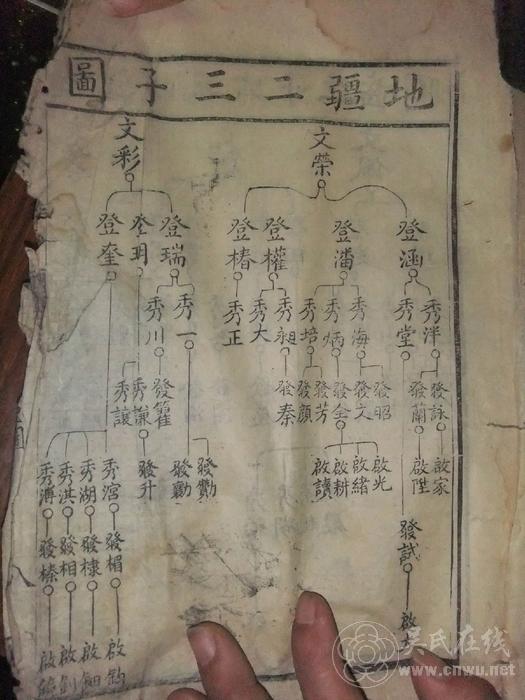 地疆二三子圖
文榮
文彩
登涵
登潘
登權
登椿
登瑞
登玥
登奎
秀泮
秀堂
秀海
秀炳
秀培
秀昶
秀大
秀正
秀一
秀川
發詠
發蘭
發昭
發文
發全
發芳
發願
發秦
發籊
秀謙
秀讓
啟家
啟陞
啟光
啟緒
啟耕
啟讀
發勷
發勳
發升
秀湖
秀淇
秀溥
發試
發楣
發棣
發相
發榛
啟
啟
啟釗
啟
啟
吴氏在线
www.cnwu.net